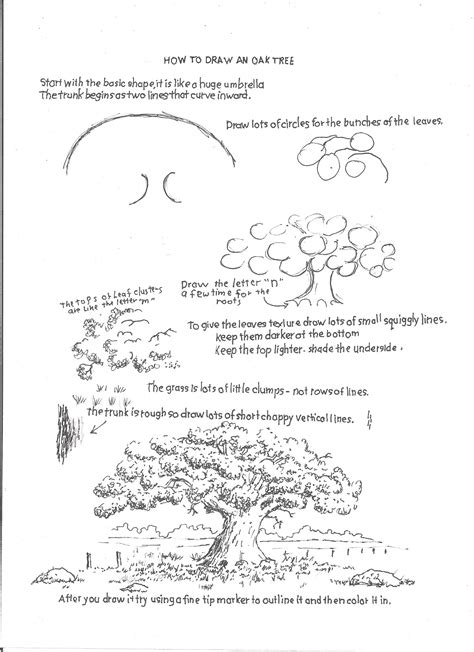 HOW TO DRAW AN OAK TREE
Start with the basic shape,it is like a huge umbrella
The trunk begins as two lines that curve inward.
Draw lots of circles for the bunches of the leaves.
Draw the letter "n"
a few time for the
roots
The tops of Leaf clusters
are like the letter "m"
To give the leaves texture draw lots of small squiggly lines.
keep them darker at the bottom
Keep the top lighter. shade the underside.
The grass is lots of little clumps - not rows of lines.
The trunk is rough so draw lots of short choppy vertical lines.
After you draw it try using a fine tip marker to outline it and then color it in.